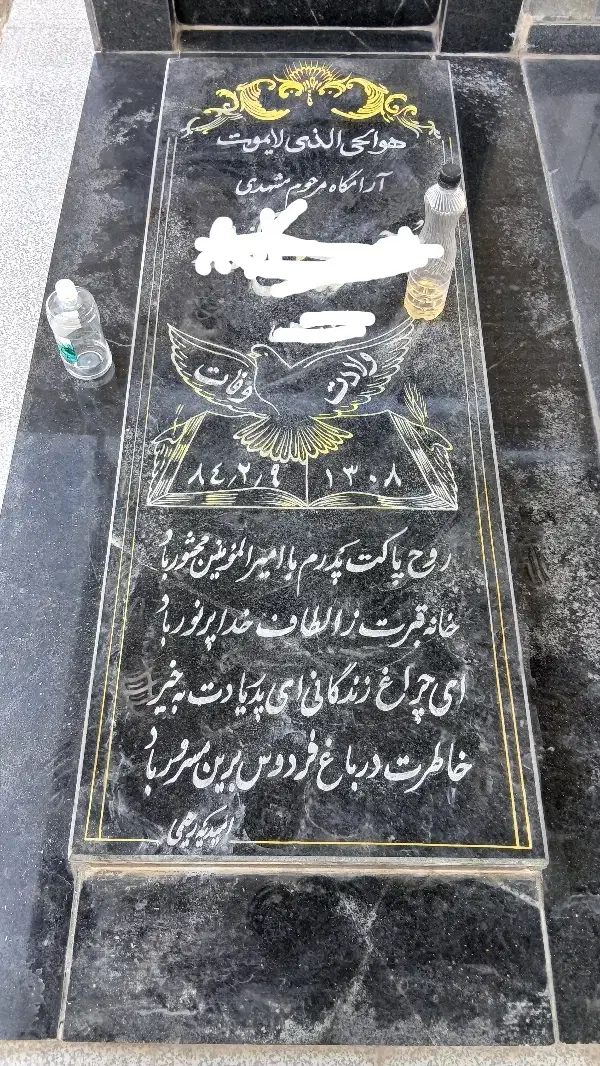 هوالحی الذی لایموت
آرامگاه مرحوم مشهدی
ولادت وفات
۱۳۰۸ ۸۴٫۲٫۹
روح پاکت پدرم با امیرالمؤمنین محشور باد
خانه قبرت ز الطاف خدا پر نور باد
ای چراغ زندگانی ای پدر یادت به خیر
خاطرت در باغ فردوس برین مسرور باد